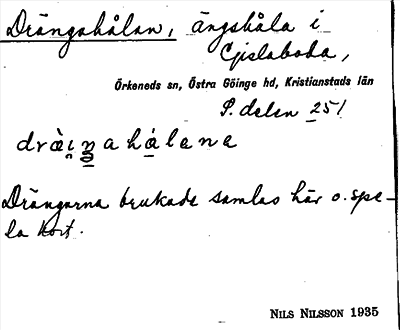 Drängahålan, ängshåla i
Gislaboda,
Örkeneds sn, Östra Göinge hd, Kristianstads län
S. delen 251
dràiŋahálana
Drängarna brukade samlas här o. spe-
la kort.
NILS NILSSON 1935